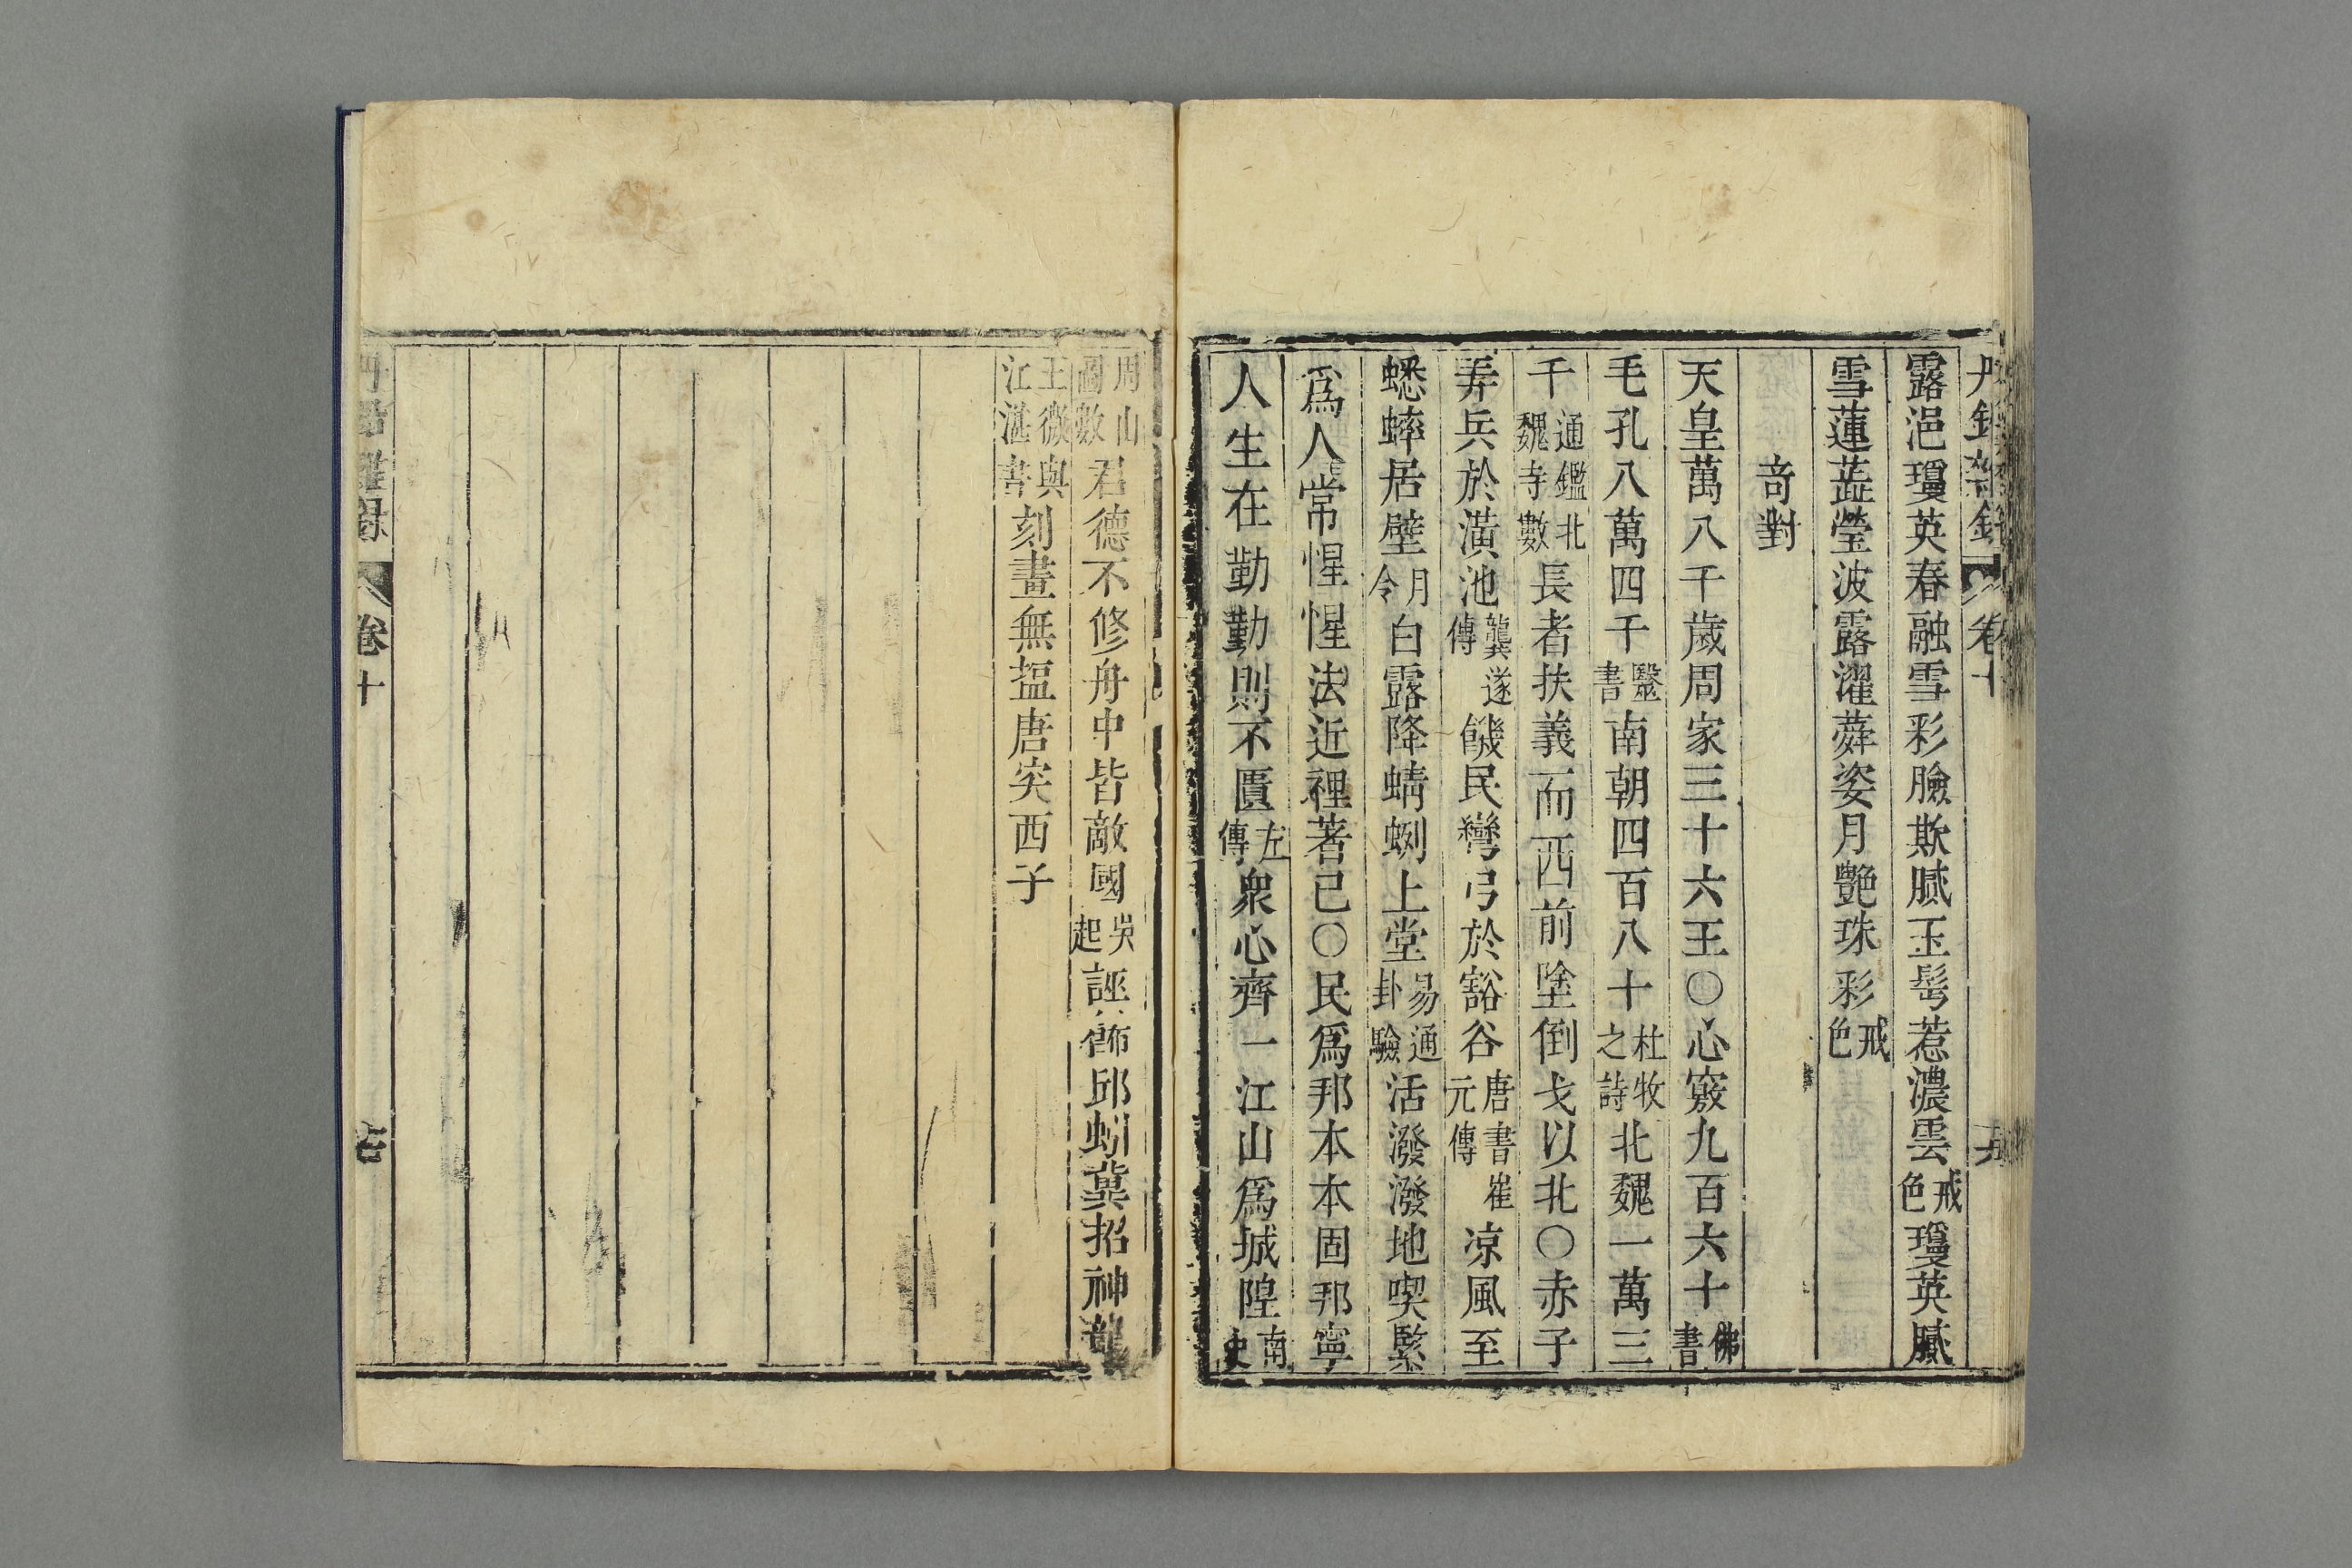 丹鉛雜錄 卷十
露浥瓊英春融雪彩臉欺膩玉髩惹濃雲戒色瓊英膩
雪蓮蕋瑩波露濯蕣姿月艶珠彩戒色
竒對
天皇萬八千歲周家三十六王〇心竅九百六十佛書
毛孔八萬四千毉書南朝四百八十杜牧之詩北魏一萬三
千通鑑北魏寺數長者扶義而西前塗倒戈以北〇赤子
弄兵於潢池龔遂傳饑民彎弓於豁谷唐書崔元傳凉風至
蟋蟀居壁月令白露降蜻蛚上堂易通卦驗活潑潑地喫緊
爲人常惺惺法近裡著已〇民爲邦本本固邦寧
人生在勤勤則不匱左傳衆心齊一江山爲城隍南史
周山圖數君德不修舟中皆敵國吳起誣飾邱蚓冀招神龍
王微與江湛書刻畫無塩唐突西子
丹鉛雜錄 卷十